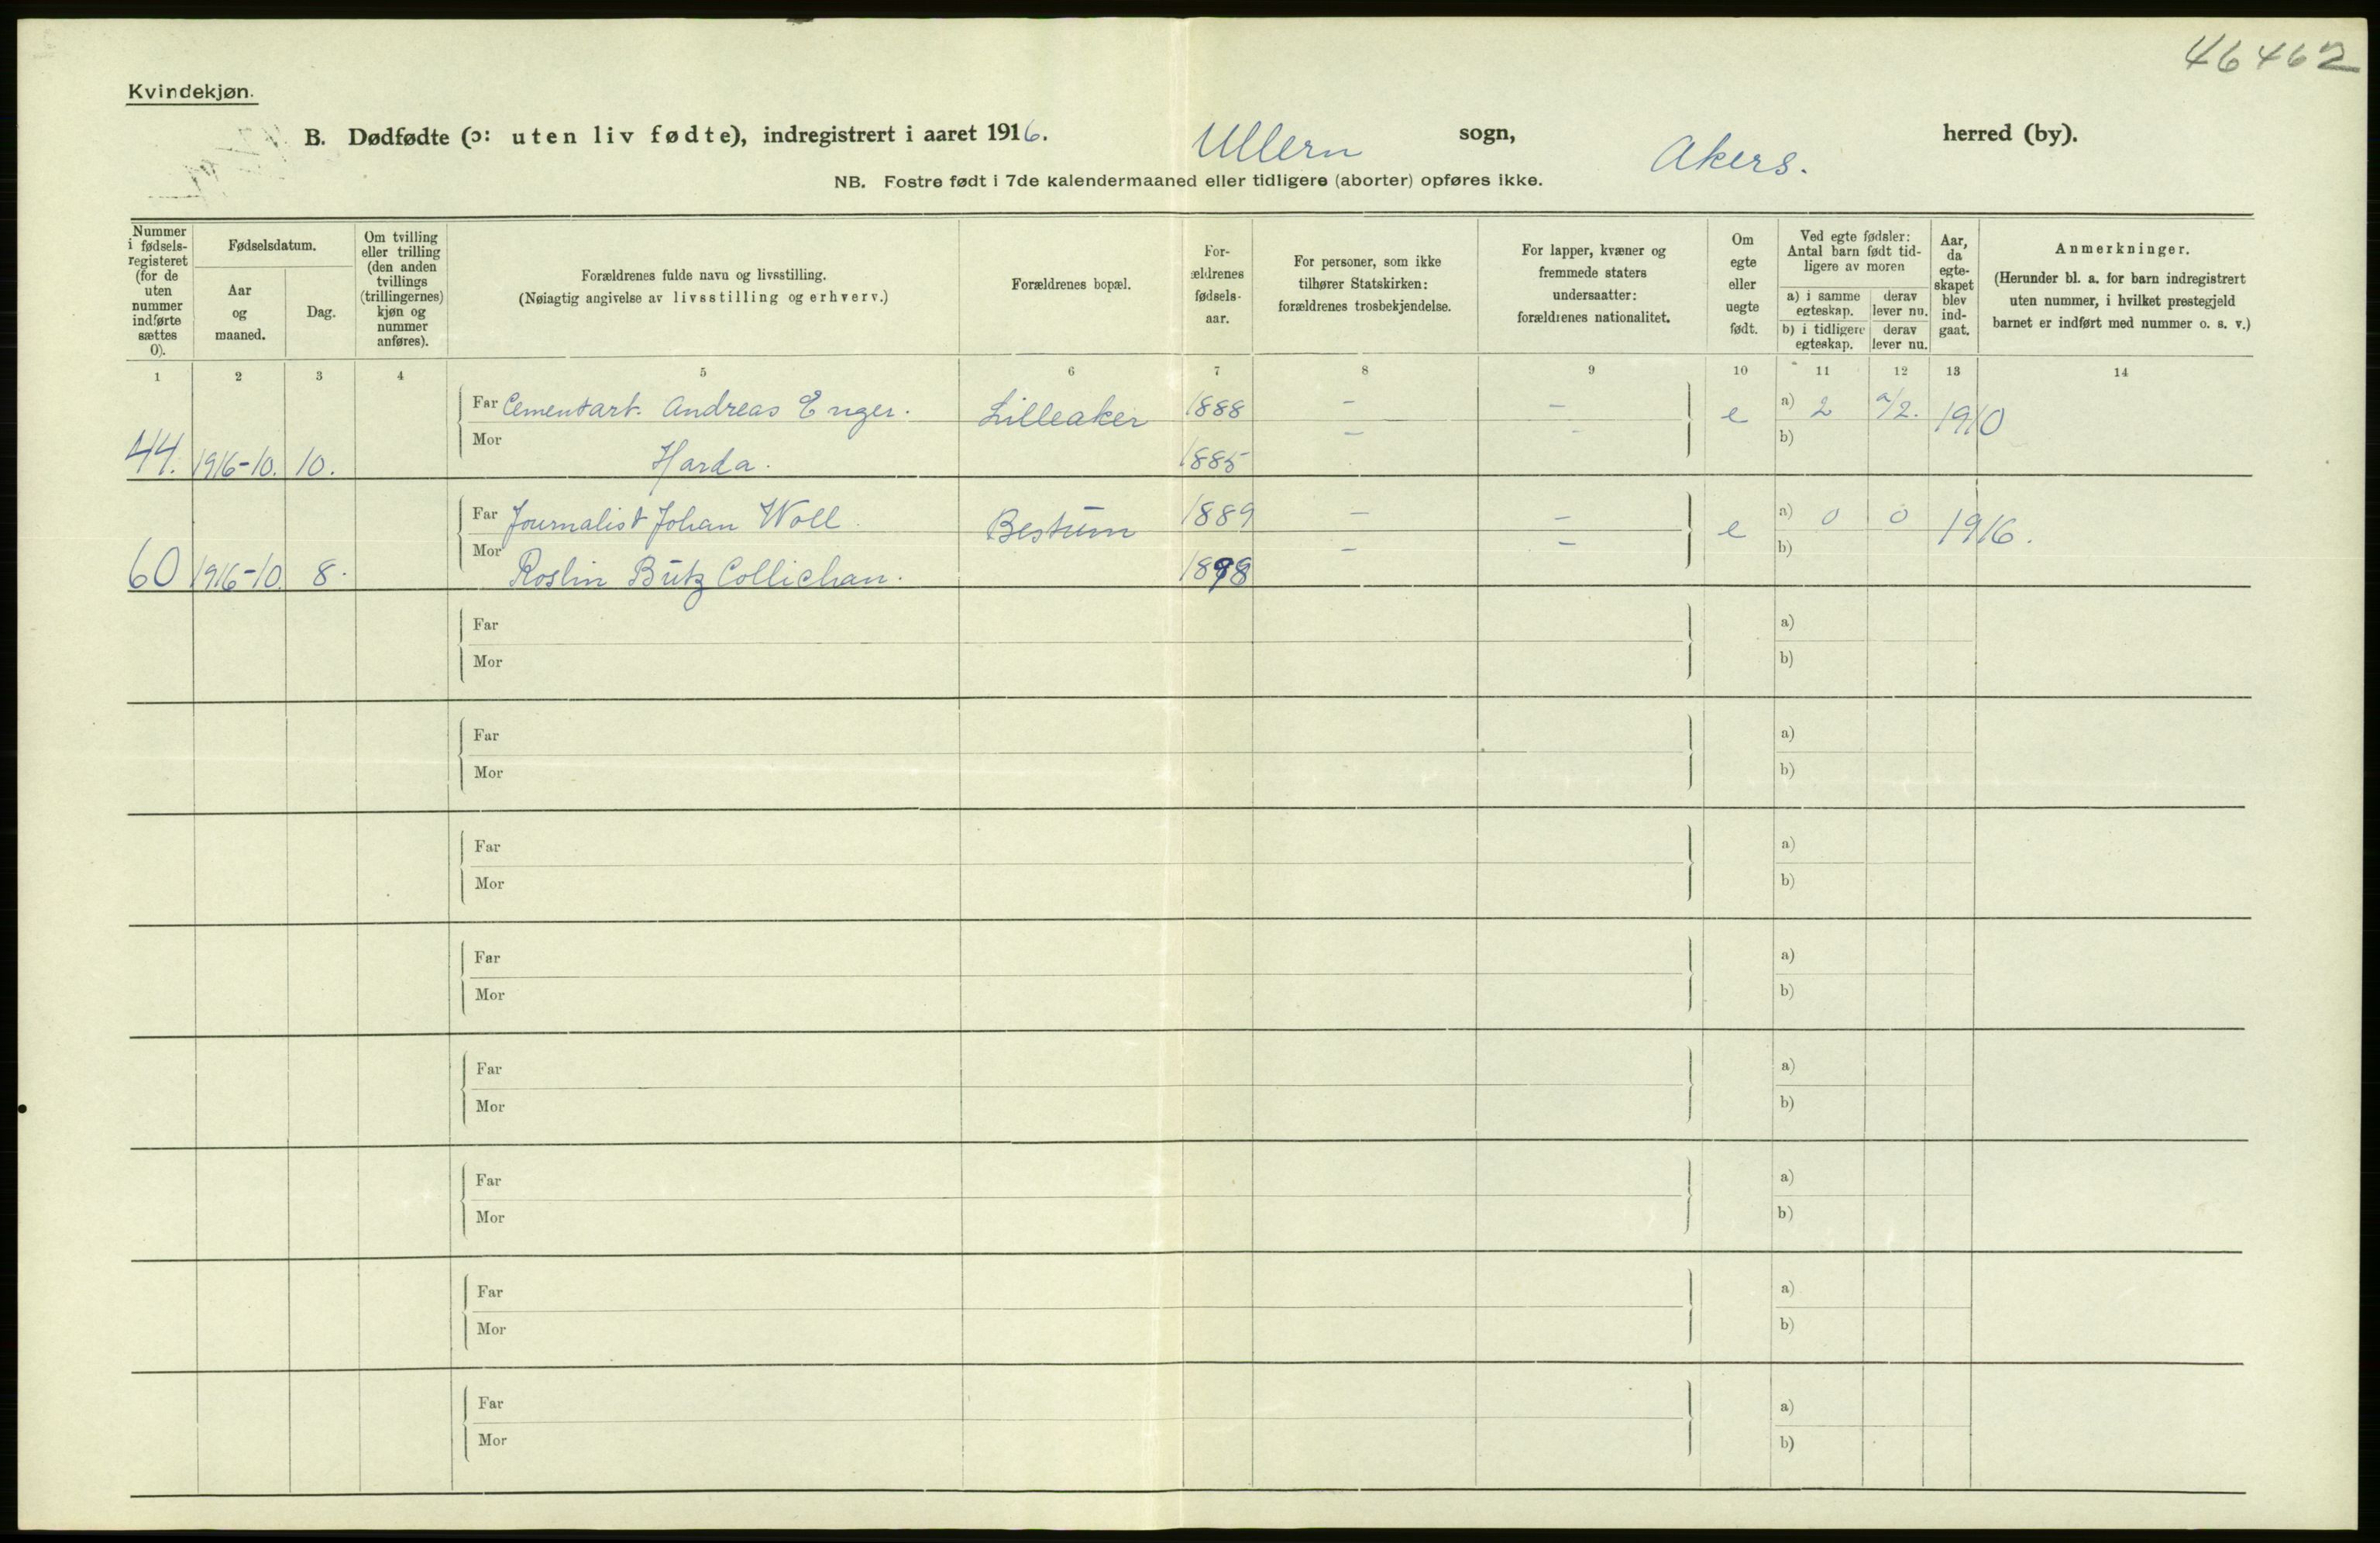 46462
Kvindekjøn.
B. Dødfødte (ɔ: uten liv fødte), indregistrert i aaret 1916. Ullern sogn, Akers. herred (by).
NB. Fostre født i 7de kalendermaaned eller tidligere (aborter) opføres ikke.
Nummer
i fødsels-
registeret
(for de
uten
nummer
indførte
sættes
0).
Fødselsdatum.
Aar
og
maaned.
Dag.
Om tvilling
eller trilling
(den anden
tvillings
(trillingernes)
kjøn og
nummer
anføres).
Forældrenes fulde navn og livsstilling.
(Nøiagtig angivelse av livsstilling og erhverv.)
Forældrenes bopæl.
For-
ældrenes
fødsels-
aar.
For personer, som ikke
tilhører Statskirken:
forældrenes trosbekjendelse.
For lapper, kvæner og
fremmede staters
undersaatter:
forældrenes nationalitet.
Om
egte
eller
uegte
født.
Ved egte fødsler:
Antal barn født tid-
ligere av moren
a) i samme
egteskap.
derav
lever nu.
b) i tidligere
egteskap.
derav
lever nu.
Aar,
da
egte-
skapet
blev
ind-
gaat.
Anmerkninger.
(Herunder bl. a. for barn indregistrert
uten nummer, i hvilket prestegjeld
barnet er indført med nummer o. s. v.)
1 2 3 4 5 6 7 8 9 10 11 12 13 14
Far Cementarb. Andreas Enger. Lilleaker 1888 – – e a) 2 a/2. 1910
Mor – – b)
44. 1916-10. 10. Harda. 1885
Far Journalist Johan Woll. Bestum 1889 – – e a) 0 0 1916.
Mor – – b)
60 1916-10. 8. Roslin Butz Collichan. 1898
Far a)
Mor b)
Far a)
Mor b)
Far a)
Mor b)
Far a)
Mor b)
Far a)
Mor b)
Far a)
Mor b)
Far a)
Mor b)
Far a)
Mor b)